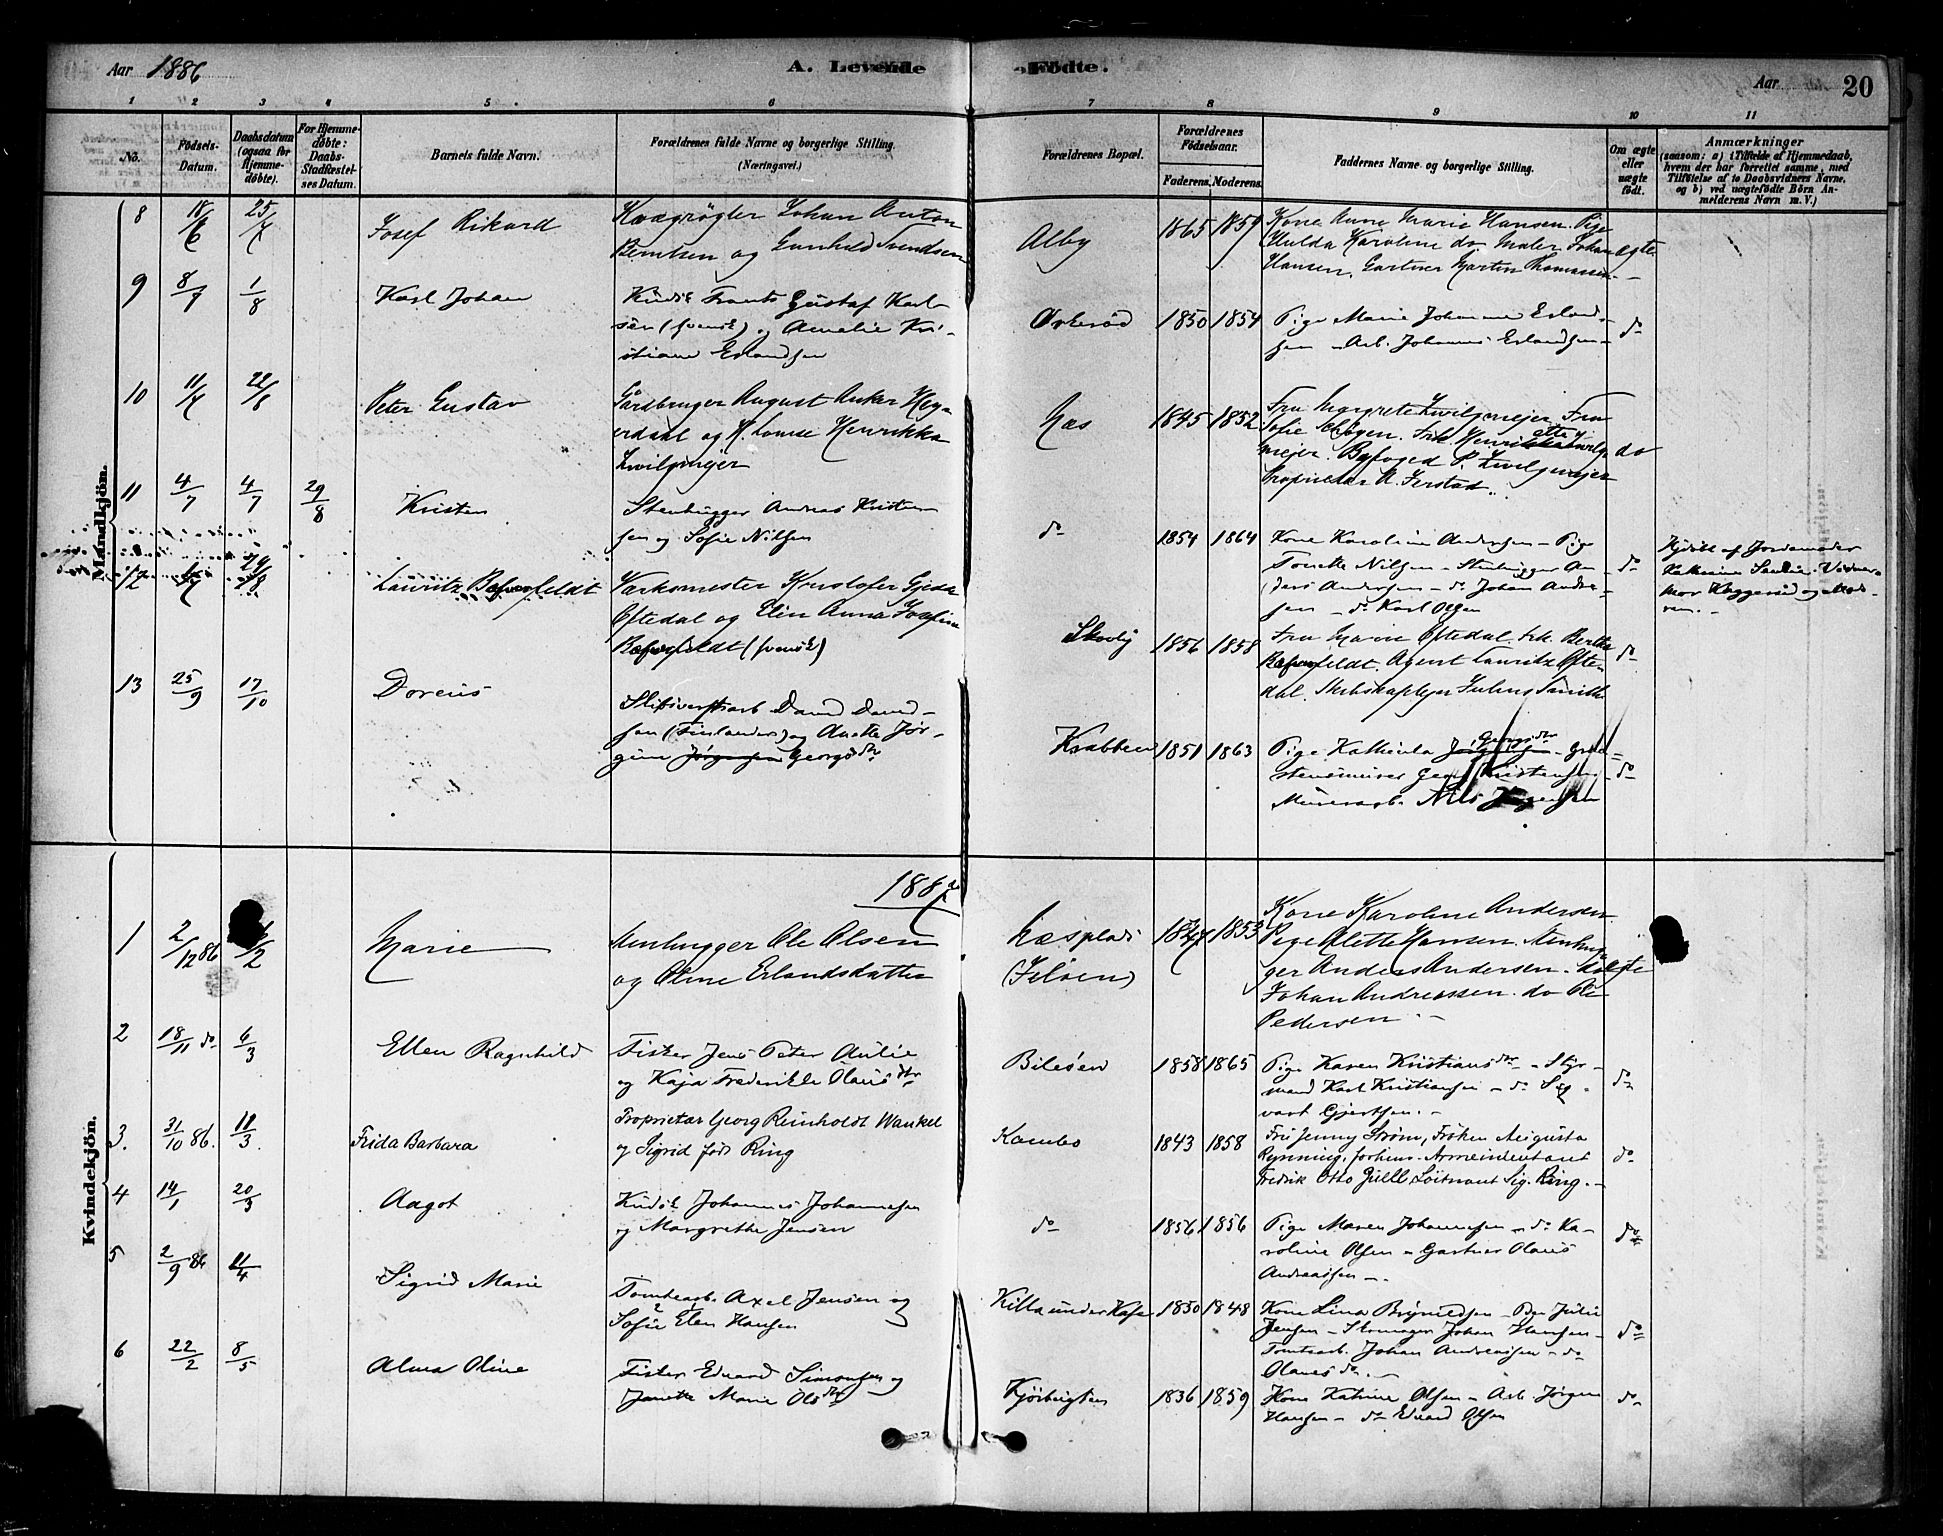 Aar 1886
A. Levende
Fødte.
Aar
20
1 2 3 4 5 6 7 8 9 10 11
No.
Fødsels-
Datum.
Daabsdatum
(ogsaa for
Hjemme-
døbte).
For Hjemme-
døbte:
Daabs-
Stadfæstel-
ses Datum.
Barnets fulde Navn.
Forældrenes fulde Navne og borgerlige Stilling.
(Næringsvei.)
Forældrenes Bopæl.
Forældrenes
Fødselsaar.
Faderens. Moderens.
Faddernes Navne og borgerlige Stilling.
Om ægte
eller
uægte
født.
Anmærkninger
(saasom: a) i Tilfælde af Hjemmedaab,
hvem der har forrettet samme, med
Tilføielse af to Daabsvidners Navne,
og b) ved uægtefødte Børn An-
melderens Navn m. V.)
Mandkjön.
8 18/6 25/7 Josef Rikard
Kvægrøgter Johan Anton
Berntsen og Gunhild Svendsen
Alby 1865 1859
Kone Anne Marie Hansen. Pige
Hulda Karoline do. Maler Johan
Hansen, Gartner Martin Thomassen.
ægte
9 8/7 1/8 Karl Johan
Frants Gustaf Karl-
sen (svensk) og Amalie Kri-
stiane Erlandsen
1850 1854
Pige Marie Johanne Erland-
sen – Arb. Johannes Erlandsen
do
10 11/4 22/6 Peter Gustav
Gårdbruger August Anker Hey-
erdahl og H. Louise Henrikka
Zwilgmejer
Næs 1845 1852
Fru Margrete Zwilgmejer. Fru
Sofie
mejer. Byfoged P. Zwilgmejer
Proprietær
do
11 4/7 4/7 29/8 Kristen
Stenhugger Andreas Kristen-
sen og Sofie Nilsen
do 1854 1864
Kone Karoline Andersen – Pige
Tonette Nilsen – Stenhugger An-
ders Andersen – do Johan Andre-
sen – do Karl Olsen
do
Hjdøbt af Jordemoder
12 29/8 Lauritz
Værksmester Kristofer Gjede
Oftedal og Elin Anna Josefine
(svensk)
Skovly 1856 1858
Fru Marie Oftedal, Frk. Bertha
Agent Lauritz Ofte-
dal. Skibskaptejn Julius Smith
do
13 25/9 17/10 Doreus
David David-
sen (Finlænder) og Anette Jør-
gine Jørgensen Georgsdtr
Krabben 1851 1863
Pige Kathinka Jørgensen Georgsdtr –
Georg Kristensen –
Murerarb. Nils Jørgensen
do
Kvindekjön.
1887
1 2/12 86 Marie
Stenhugger Ole Olsen
og Oline Erlandsdatter
Næsplads
(Jeløen)
1847 1853
Kone Karoline Andersen
Pige Olette Hansen. Stenhug-
ger Anders Andersen. do
Johan Andreassen. do Ole
Pedersen. –
ægte
2 18/11 do 6/3 Ellen Ragnhild
Fisker Jens Peter Aulie
og Kaja Frederikke Olausdtr
Biløen 1858 1865
Pige Karen Kristiansdtr – Styr-
mand Karl Kristiansen – do Sig-
vart Gjertsen. –
do
3. 31/10 86. 11/3. Frida Barbara
Proprietær Georg Reinholdt Wankel
og Sigrid født Ring
Kambo 1843 1858
Fru Jenny Strøm, Frøken Augusta
Rynning,
Fredrik Otto Løitnant Sig. Ring. –
do
4 14/1 20/3 Aagot
Johannes Johannesen
og Margrethe Jensen
do 1856 1856
Pige Maren Johannesen – do Ka-
roline Olsen – Gartner Olaus
Andreassen –.
do
5 2/9 86 11/4 Sigrid Marie
Tomtearb. Axel Jensen og
Sofie Elen Hansen
1850 1848
Kone Lina Brynildsen – Pige Julie
Jensen – Johan Hansen –
Tomtearb. Johan Andreassen – do
Olaus do. –
do
6 22/2 8/5 Alma Oline
Fisker Edvard Simonsen og
Janette Marie Olsdtr
1836 1859
Kone Katrine Olsen – Arb. Jørgen
Hansen – do Edvard Olsen
do